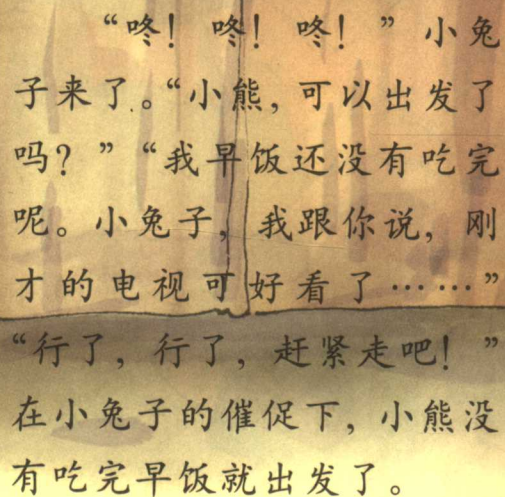 “咚！咚！咚！”小兔
子来了。“小熊，可以出发了
吗？”“我早饭还没有吃完
呢。小兔子，我跟你说，刚
才的电视可好看了……”
“行了，行了，赶紧走吧！”
在小兔子的催促下，小熊没
有吃完早饭就出发了。